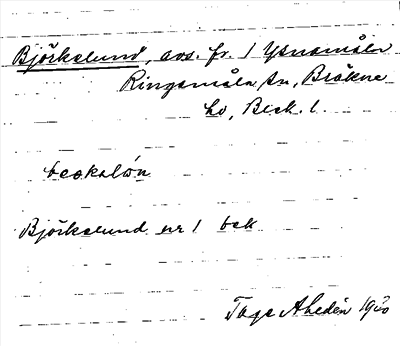 Björkelund, avs. fr. 1 Yxnamåla
Ringamåla sn, Bräkne
hd, Blek. l.
beokslön
Björkelund nr 1 bek
Tage Ahledén 1930